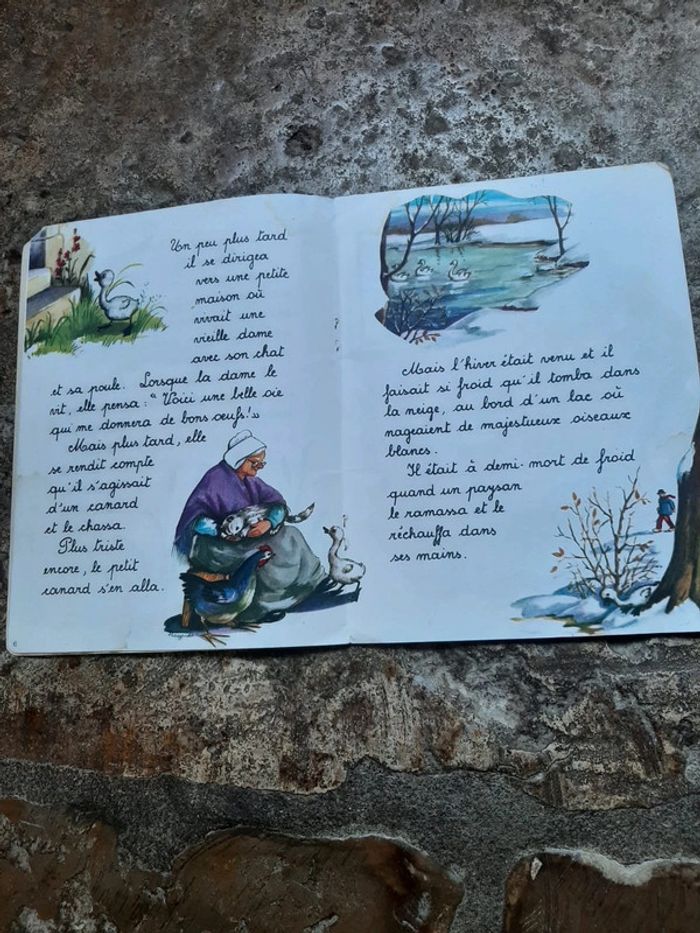 Un peu plus tard
il se dirigea
vers une petite
maison où
vivait une
vieille dame
avec son chat
et sa poule. Lorsque la dame le
vit, elle pensa: "Voici une belle oie
qui me donnera de bons œufs!"
Mais plus tard, elle
se rendit compte
qu'il s'agissait
d'un canard
et le chassa.
Plus triste
encore, le petit
canard s'en alla.
6
Mais l'hiver était venu et il
faisait si froid qu'il tomba dans
la neige, au bord d'un lac où
nageaient de majestueux oiseaux
blancs.
Il était à demi-mort de froid
quand un paysan
le ramassa et le
réchauffa dans
ses mains.